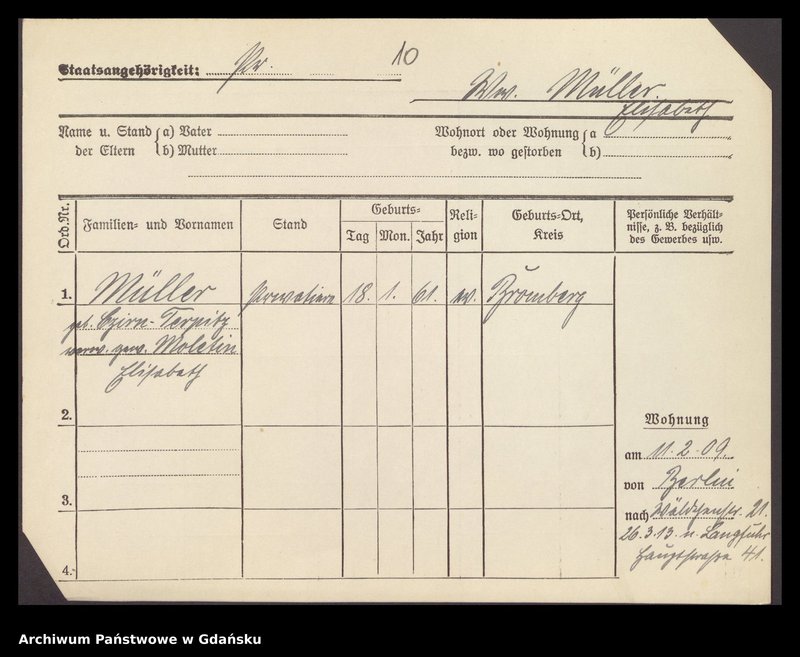 10
Staatsangehörigkeit: Pr.
Ww. Müller.
Elisabeth
Name u. Stand der Eltern
a) Vater
b) Mutter
Wohnort oder Wohnung bezw. wo gestorben
a
b)
Ord.Nr.
Familien- und Vornamen
Stand
Geburts-
Tag Mon. Jahr
Reli-
gion
Geburts-Ort,
Kreis
Persönliche Verhält-
nisse, z. B. bezüglich
des Gewerbes usw.
1. Müller Privatiere 18. 1. 61. ev. Bromberg
gb. Czirn-Terpitz
verw. gew.
Elisabeth
2.
3.
4.
Wohnung
am 11. 2. 09.
von Berlin
nach 21.
26.3.13. n. Langfuhr
Hauptstraße 41.
Archiwum Państwowe w Gdańsku